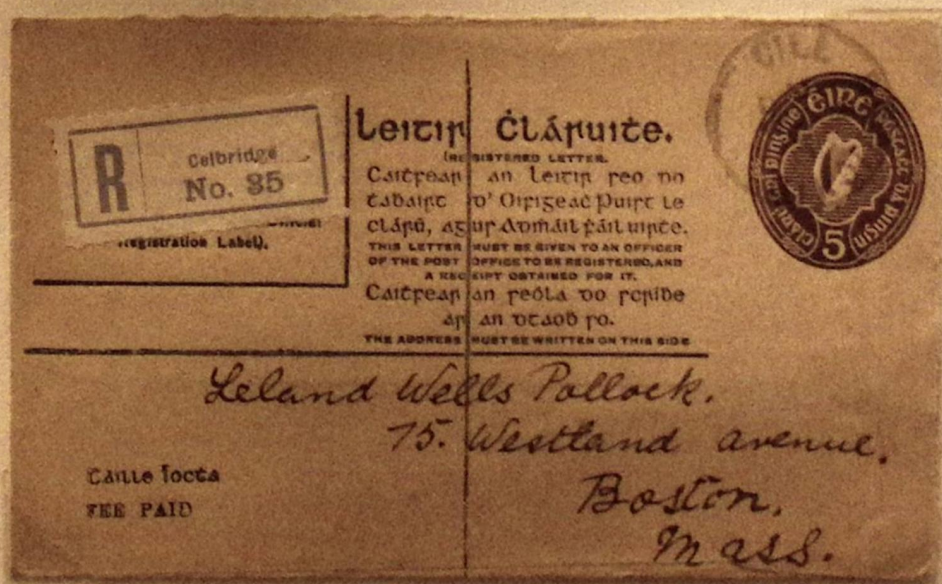 CILL
R
Celbridge
No. 35
Registration Label).
Leitir Ċláruiṫe.
(REGISTERED LETTER.
Caiṫfear an leitir seo do
ṫabairt d' Oifigeaċ Puirt le
clárú, agus Admáil ḟáil uirṫe.
THIS LETTER MUST BE GIVEN TO AN OFFICER
OF THE POST OFFICE TO BE REGISTERED, AND
A RECEIPT OBTAINED FOR IT.
Caiṫfear an seóla do scríbe
ar an dtaoḃ so.
THE ADDRESS MUST BE WRITTEN ON THIS SIDE
ÉIRE
Postas dá pingin
Clárú trí pingine
5
Leland Wells Pollock.
75. Westland avenue.
Boston.
Mass.
Táille íocta
FEE PAID